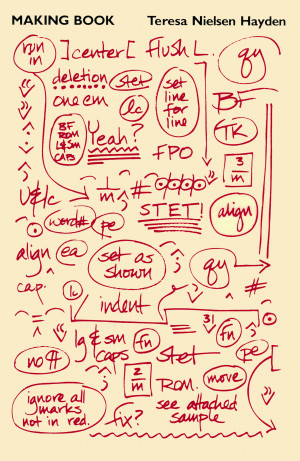 MAKING BOOK Teresa Nielsen Hayden
run in ]center[ flush L. qy
deletion stet set line for line
one em lc BF
BF ROM L&Sm CAPS Yeah? TK
FPO 3 m
u&lc 1 m #
STET! align
word# pe
align ea set as shown qy
cap. #
lc indent
= 31
no ¶ lg & sm caps fn stet fn pe
2 m ROM. move
ignore all marks not in red. fix? see attached sample